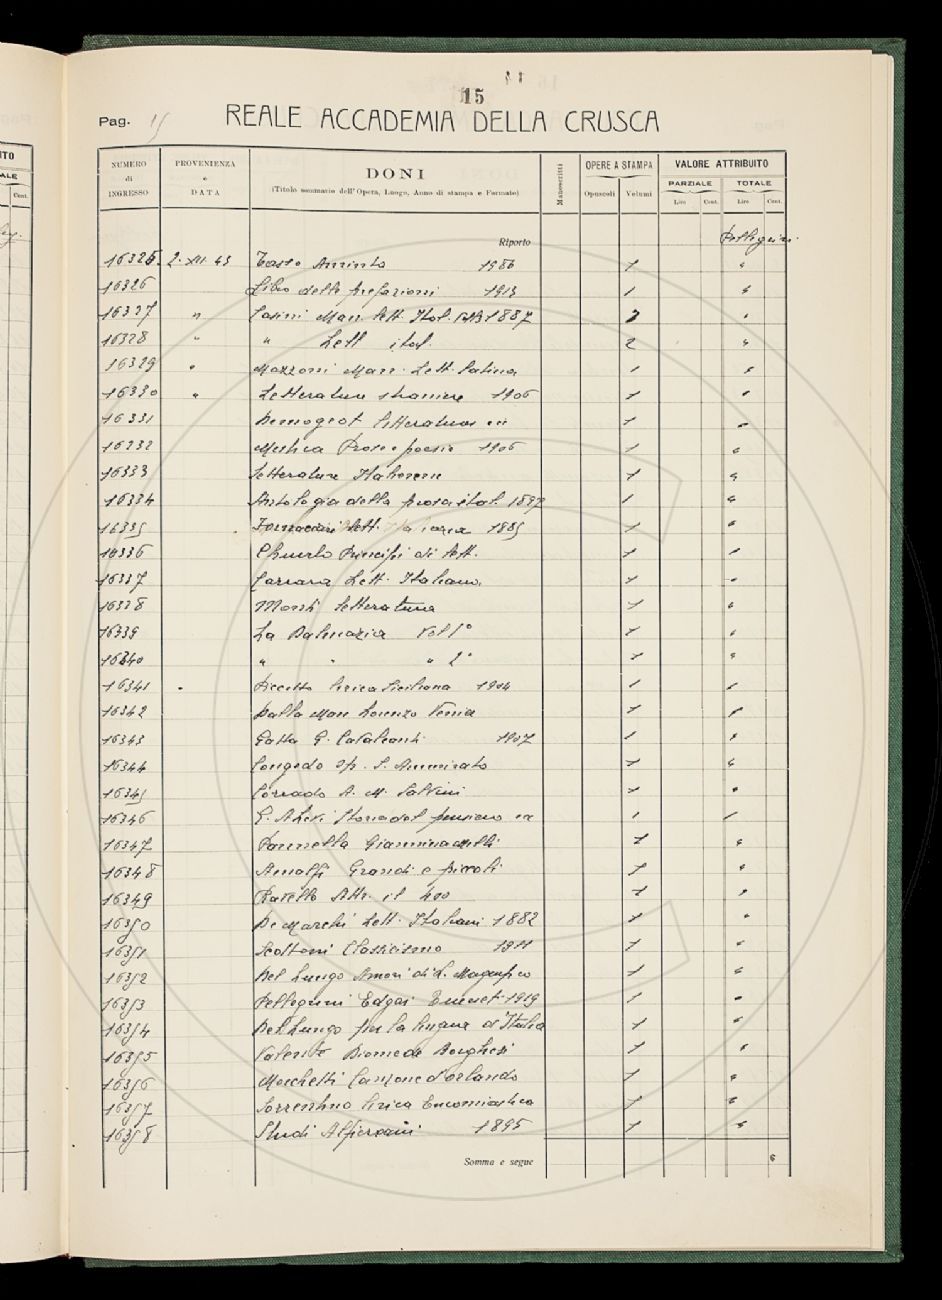 15
Pag. 15 REALE ACCADEMIA DELLA CRUSCA
NUMERO di INGRESSO PROVENIENZA e DATA DONI (Titolo sommario dell'Opera, Luogo, Anno di stampa e Formato) Manoscritti OPERE A STAMPA Opuscoli Volumi VALORE ATTRIBUITO PARZIALE Lire Cent. TOTALE Lire Cent.
Riporto Pellegrini
16325 2-XII-43 Tasso Aminta 1 "
16326 Libro delle prefazioni 1913 1 "
16327 " Casini Man. lett. Ital. 1887 "
16328 " " Lett ital. 2 "
16329 " Mazzoni Man. Lett. latina 1 "
16330 " Letterature straniere 1906 1 "
16331 Demogeot letterature 1 "
16332 Mestica Prose e poesie 1906 1 "
16333 Letteratura Italiana 1 "
16334 Antologia della prosa ital. 1897 1 "
16335 Fornaciari lett. Italiana 1885 1 "
16336 Principi di lett. 1 "
16337 Carrara Lett. Italiana 1 "
16338 Monti letteratura 1 "
16339 La Dalmazia Vol 1° 1 "
16340 " " " 2° 1 "
16341 " lirica Siciliana 1904 1 "
16342 Dalla Man Lorenzo Venier 1 "
16343 Gatta G. Cavalcanti 1907 1 "
16344 Congedo Sp. S. Ammirato 1 "
16345 Corrado A. M. Salvini 1 "
16346 G. A. Levi Storia del pensiero 1 "
16347 Pannella Giannina Milli 1 "
16348 Arnolfi Grandi e piccoli 1 "
16349 il 400 1 "
16350 De Marchi Lett. Italiani 1882 1 "
16351 Scoltoni Classicismo 1911 1 "
16352 Del Lungo Amori di L. Magnifico 1 "
16353 Pellegrini Edgar Quinet 1919 1 "
16354 Del Lungo per la lingua d'Italia 1 "
16355 Valente Diomede Borghesi 1 "
16356 Canzone d'orlando 1 "
16357 Sorrentino lirica Encomiastica 1 "
16358 Studi Alfieriani 1895 1 "
Somma e segue